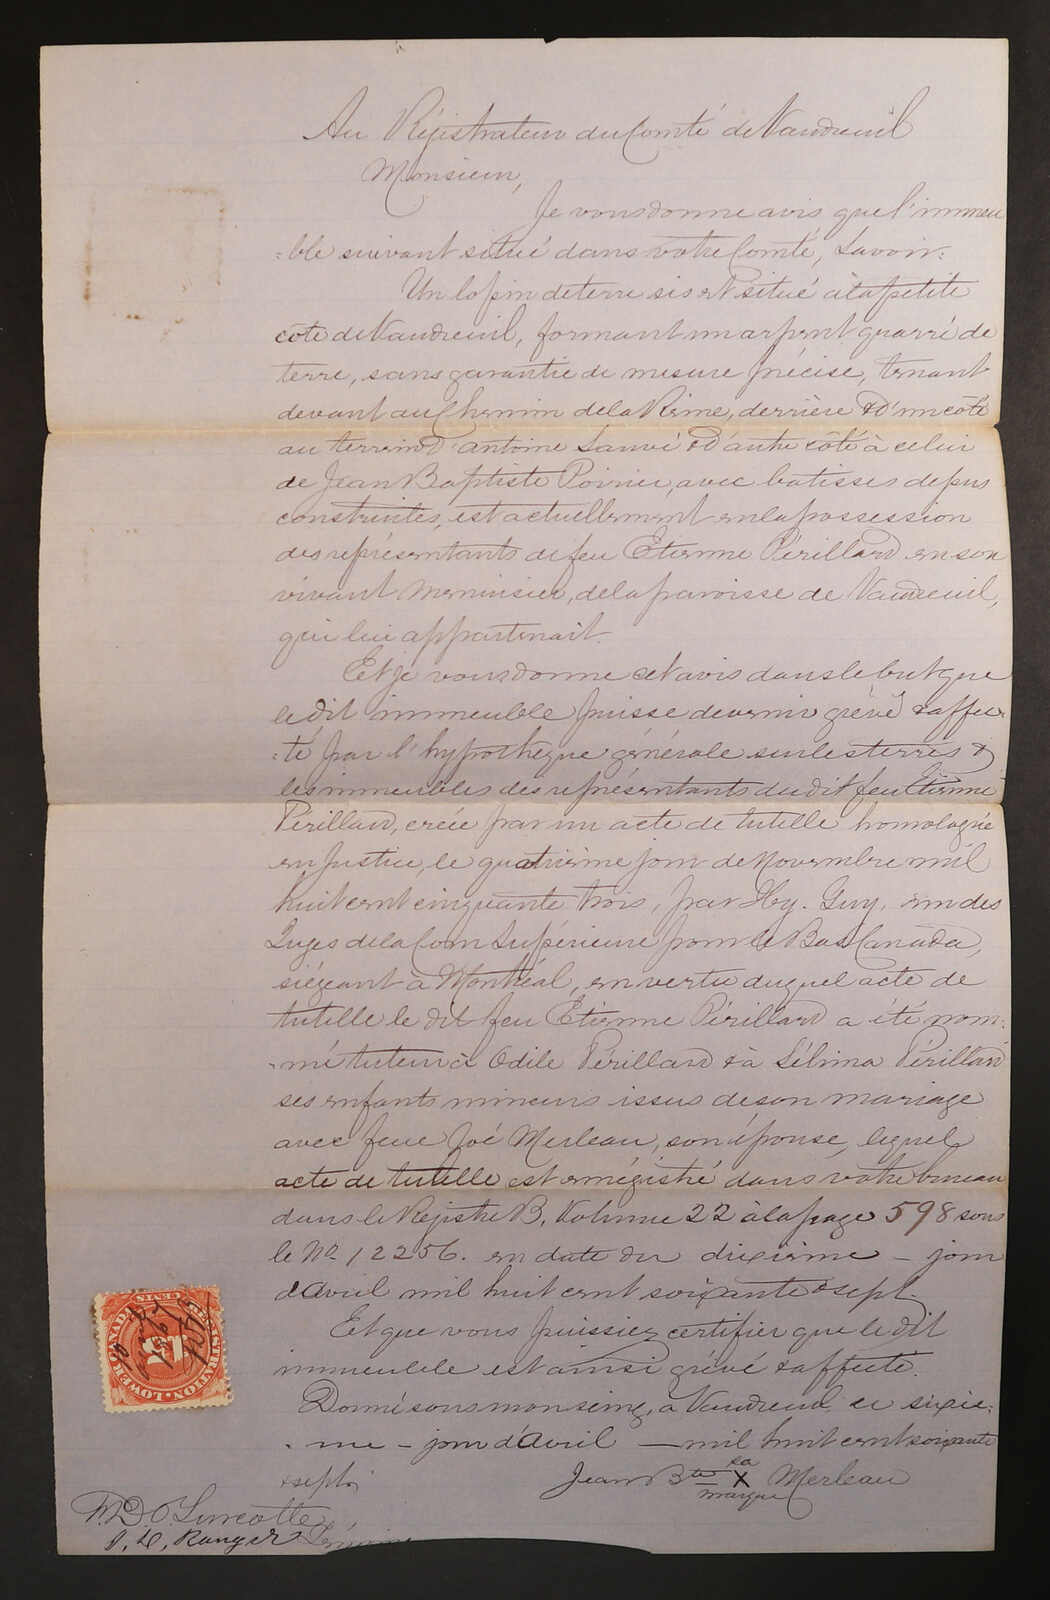 Au Régistrateur du Comté de Vaudreuil
Monsieur,
Je vous donne avis que l'immeu
=ble suivant situé dans votre Comté, Savoir:
Un lopin de terre sis et situé à la petite
côte de Vaudreuil, formant un arpent quarré de
terre, sans garantie de mesure précise, tenant
devant au Chemin de la Reine, derrière & d'un côté
au terrein d'antoine Sauvé & d'autre côté à celui
de Jean Baptiste Poirier, avec batisses depus
construites, est actuellement en la possession
des représentants de feu Etienne Périllard en son
vivant Menuisier, de la paroisse de Vaudreuil,
qui lui appartenait.
Et je vous donne cet avis dans le but que
le dit immeuble puisse devenir grévé & affec
=té par l'hypothèque générale sur les terres &
les immeubles des représentants du dit feu Etienne
Périllard, créée par un acte de tutelle homologuée
en justice, le quatrième jour de Novembre mil
huit cent cinquante trois, par Hy. Guy, un des
Juges de la Cour Supérieure pour le Bas Canada,
siégeant à Montréal, en vertu duquel acte de
tutelle le dit feu Etienne Périllard a été nom=
=mé tuteur à Odile Périllard & à Sélima Périllard
ses enfants mineurs issus de son mariage
avec feue Joé Merleau, son épouse, lequel
acte de tutelle est enrégistré dans votre bureau
dans le Régistre B, Volume 22 à la page 598 sous
le No 12256. en date du dixième - jour
d'avril mil huit cent soixante & sept.
Et que vous puissiez certifier que le dit
immeuble est ainsi grévé & affecté.
Donné sous mon seing, à Vaudreuil ce sixiè=
=me - jour d'avril - mil huit cent soixante
& sept.
Jean Bte sa X marque Merleau
F. D. O. Turcotte
J. H. Ranger
REGISTRATION. LOWER CANADA
15
CENTS